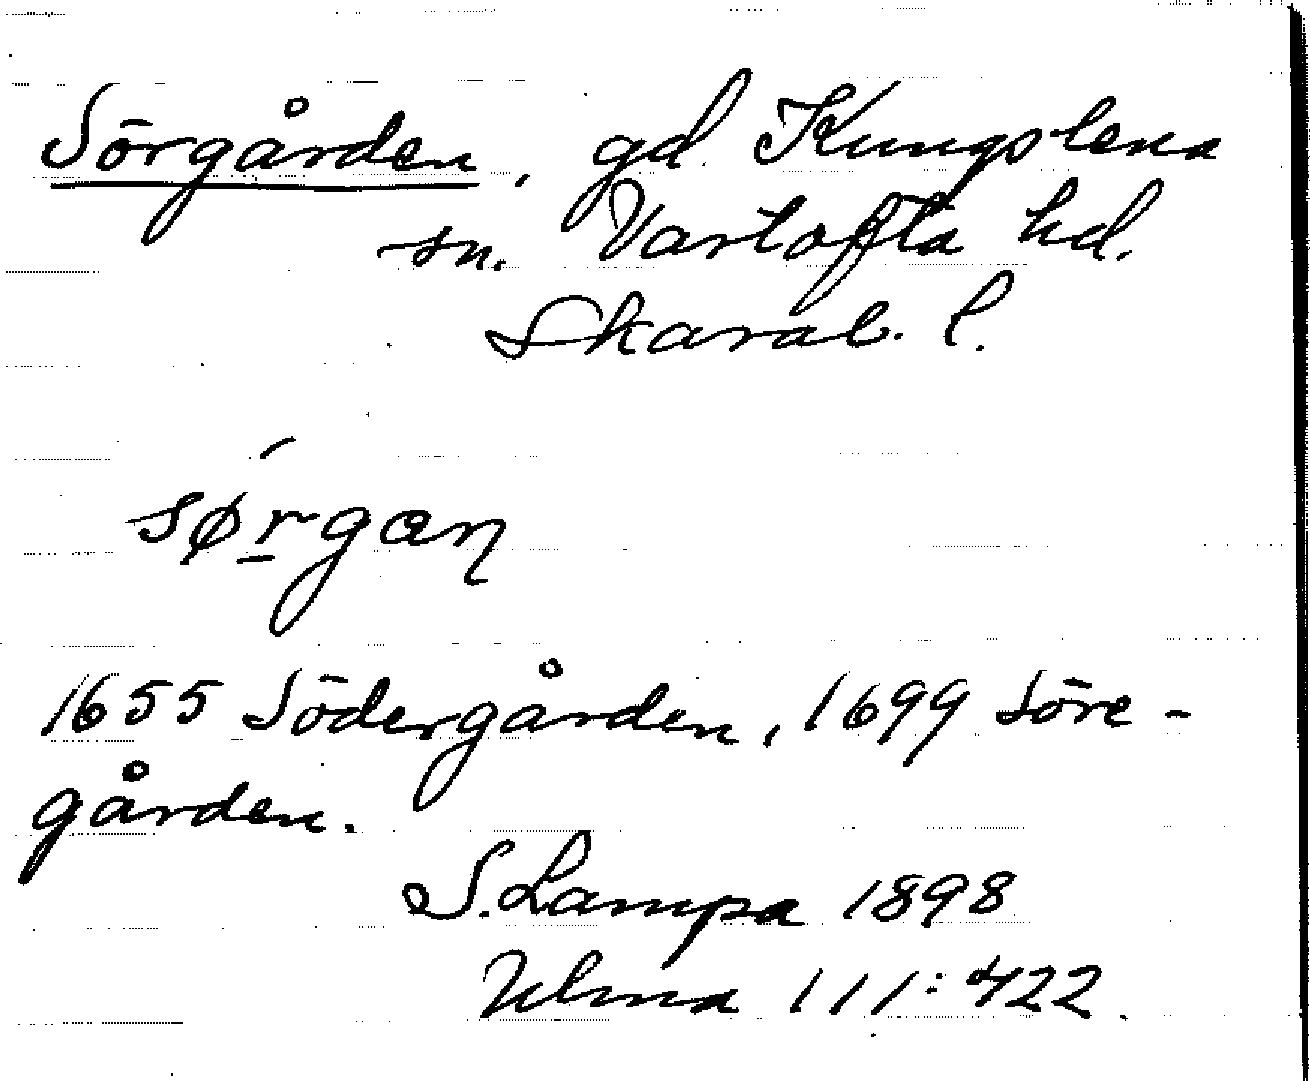 Sörgården, gd. Kungslena
sn. Vartofta hd.
Skarab. l.
sǿr̲gaɳ
1655 Södergården, 1699 Söre-
gården.
S. Lampa 1898
Ulma 111:422